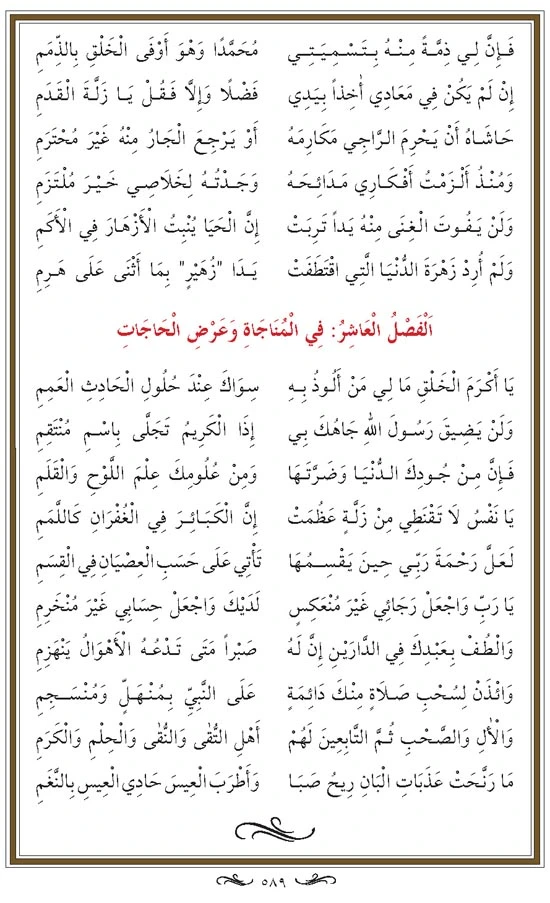 فَإِنَّ لِي ذِمَّةً مِنْهُ بِتَسْمِيَتِي مُحَمَّدًا وَهْوَ أَوْفَى الْخَلْقِ بِالذِّمَمِ
إِنْ لَمْ يَكُنْ فِي مَعَادِي أٰخِذاً بِيَدِي فَضْلًا وَإِلَّا فَقُلْ يَا زَلَّةَ الْقَدَمِ
حَاشَاهُ أَنْ يَحْرِمَ الرَّاجِي مَكَارِمَهُ أَوْ يَرْجِعَ الْجَارُ مِنْهُ غَيْرَ مُحْتَرَمِ
وَمُنْذُ أَلْزَمْتُ أَفْكَارِي مَدَائِحَهُ وَجَدْتُهُ لِخَلَاصِي خَيْرَ مُلْتَزَمِ
وَلَنْ يَفُوتَ الْغِنَى مِنْهُ يَداً تَرِبَتْ إِنَّ الْحَيَا يُنْبِتُ الْأَزْهَارَ فِي الْأَكَمِ
وَلَمْ أُرِدْ زَهْرَةَ الدُّنْيَا الَّتِي اقْتَطَفَتْ يَدَا "زُهَيْرٍ" بِمَا أَثْنَى عَلَى هَرِمِ
اَلْفَصْلُ الْعَاشِرُ: فِي الْمُنَاجَاةِ وَعَرْضِ الْحَاجَاتِ
يَا أَكْرَمَ الْخَلْقِ مَا لِي مَنْ أَلُوذُ بِهِ سِوَاكَ عِنْدَ حُلُولِ الْحَادِثِ الْعَمِمِ
وَلَنْ يَضِيقَ رَسُولَ اللهِ جَاهُكَ بِي إِذَا الْكَرِيمُ تَجَلَّى بِاسْمِ مُنْتَقِمِ
فَإِنَّ مِنْ جُودِكَ الدُّنْيَا وَضَرَّتَهَا وَمِنْ عُلُومِكَ عِلْمَ اللَّوْحِ وَالْقَلَمِ
يَا نَفْسُ لَا تَقْنَطِي مِنْ زَلَّةٍ عَظُمَتْ إِنَّ الْكَبَائِرَ فِي الْغُفْرَانِ كَاللَّمَمِ
لَعَلَّ رَحْمَةَ رَبِّي حِينَ يَقْسِمُهَا تَأْتِي عَلَى حَسَبِ الْعِصْيَانِ فِي الْقِسَمِ
يَا رَبِّ وَاجْعَلْ رَجَائِي غَيْرَ مُنْعَكِسٍ لَدَيْكَ وَاجْعَلْ حِسَابِي غَيْرَ مُنْخَرِمِ
وَالْطُفْ بِعَبْدِكَ فِي الدَّارَيْنِ إِنَّ لَهُ صَبْراً مَتَى تَدْعُهُ الْأَهْوَالُ يَنْهَزِمِ
وَائْذَنْ لِسُحْبِ صَلَاةٍ مِنْكَ دَائِمَةٍ عَلَى النَّبِيِّ بِمُنْهَلٍّ وَمُنْسَجِمِ
وَالْأٰلِ وَالصَّحْبِ ثُمَّ التَّابِعِينَ لَهُمْ أَهْلِ التُّقٰى وَالنُّقٰى وَالْحِلْمِ وَالْكَرَمِ
مَا رَنَّحَتْ عَذَبَاتِ الْبَانِ رِيحُ صَبَا وَأَطْرَبَ الْعِيسَ حَادِي الْعِيسِ بِالنَّغَمِ
٥٨٩